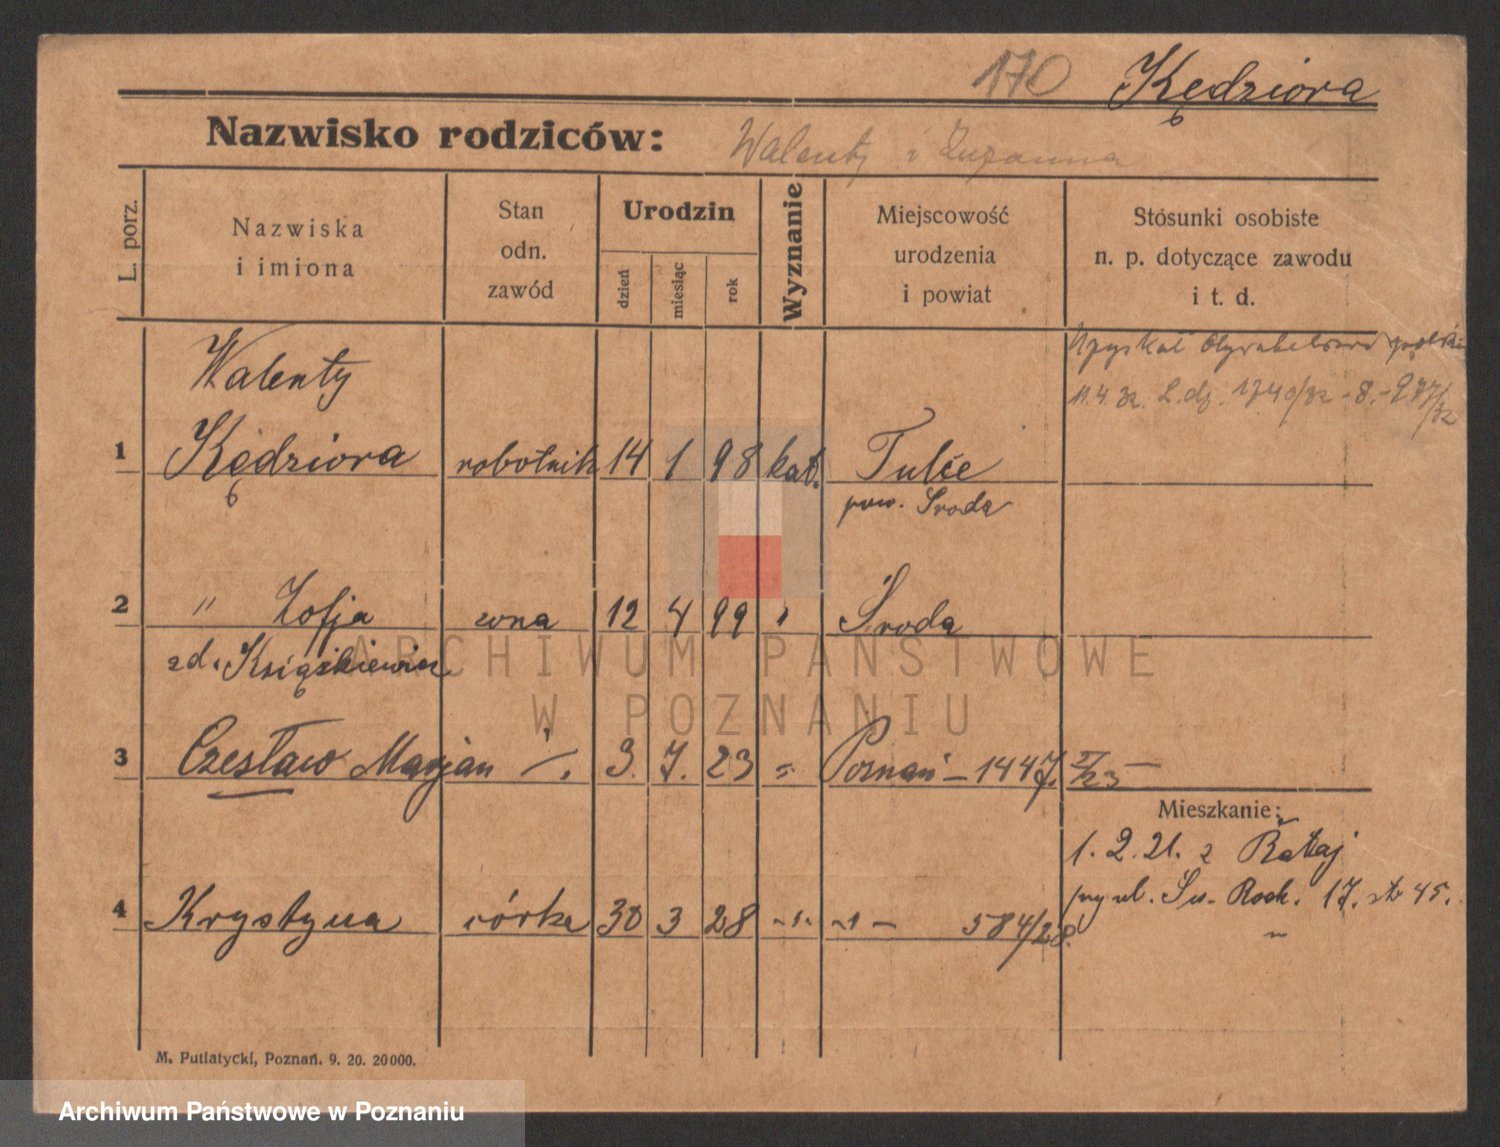 170 Kędziora
Nazwisko rodziców: Walenty i Zuzanna
L. porz.
Nazwiska
i imiona
Stan
odn.
zawód
Urodzin
dzień
miesiąc
rok
Wyznanie
Miejscowość
urodzenia
i powiat
Stosunki osobiste
n. p. dotyczące zawodu
i t. d.
11.4.32. L.dz. 1340/32
Walenty
1 Kędziora robotnik 14 1 98 kat. Tulce
pow. Środa
2 " Zofja żona 12 4 99 " Środa
zd. Książkiewicz
3 Czesław Marjan 3. 7. 23 " Poznań – 1447. /23 –
Mieszkanie:
1. 2. 21. z Rataj
przy ul. Św. Roch. 17. 45.
4 Krystyna córka 30 3 28 – " – – " – 584/28.
M. Putiatycki, Poznań. 9. 20. 20000.
ARCHIWUM PAŃSTWOWE
W POZNANIU
Archiwum Państwowe w Poznaniu